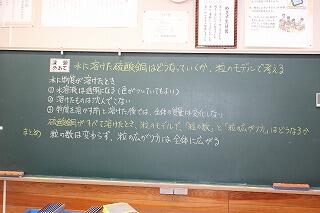 水に溶けた硫酸銅はどうなっていくか、粒のモデルで考える
水に物質が溶けたとき
① 水溶液は透明になる(色がついていてもよい)
② 溶けたものは沈んでこない
③ 物質を溶かす前と溶かした後では、全体の質量は変化しない
硫酸銅がすべて溶けたとき、粒のモデルで、「粒の数」と「粒の広がり方」はどうなるか
まとめ 粒の数は変わらず、粒の広がり方は全体に広がる